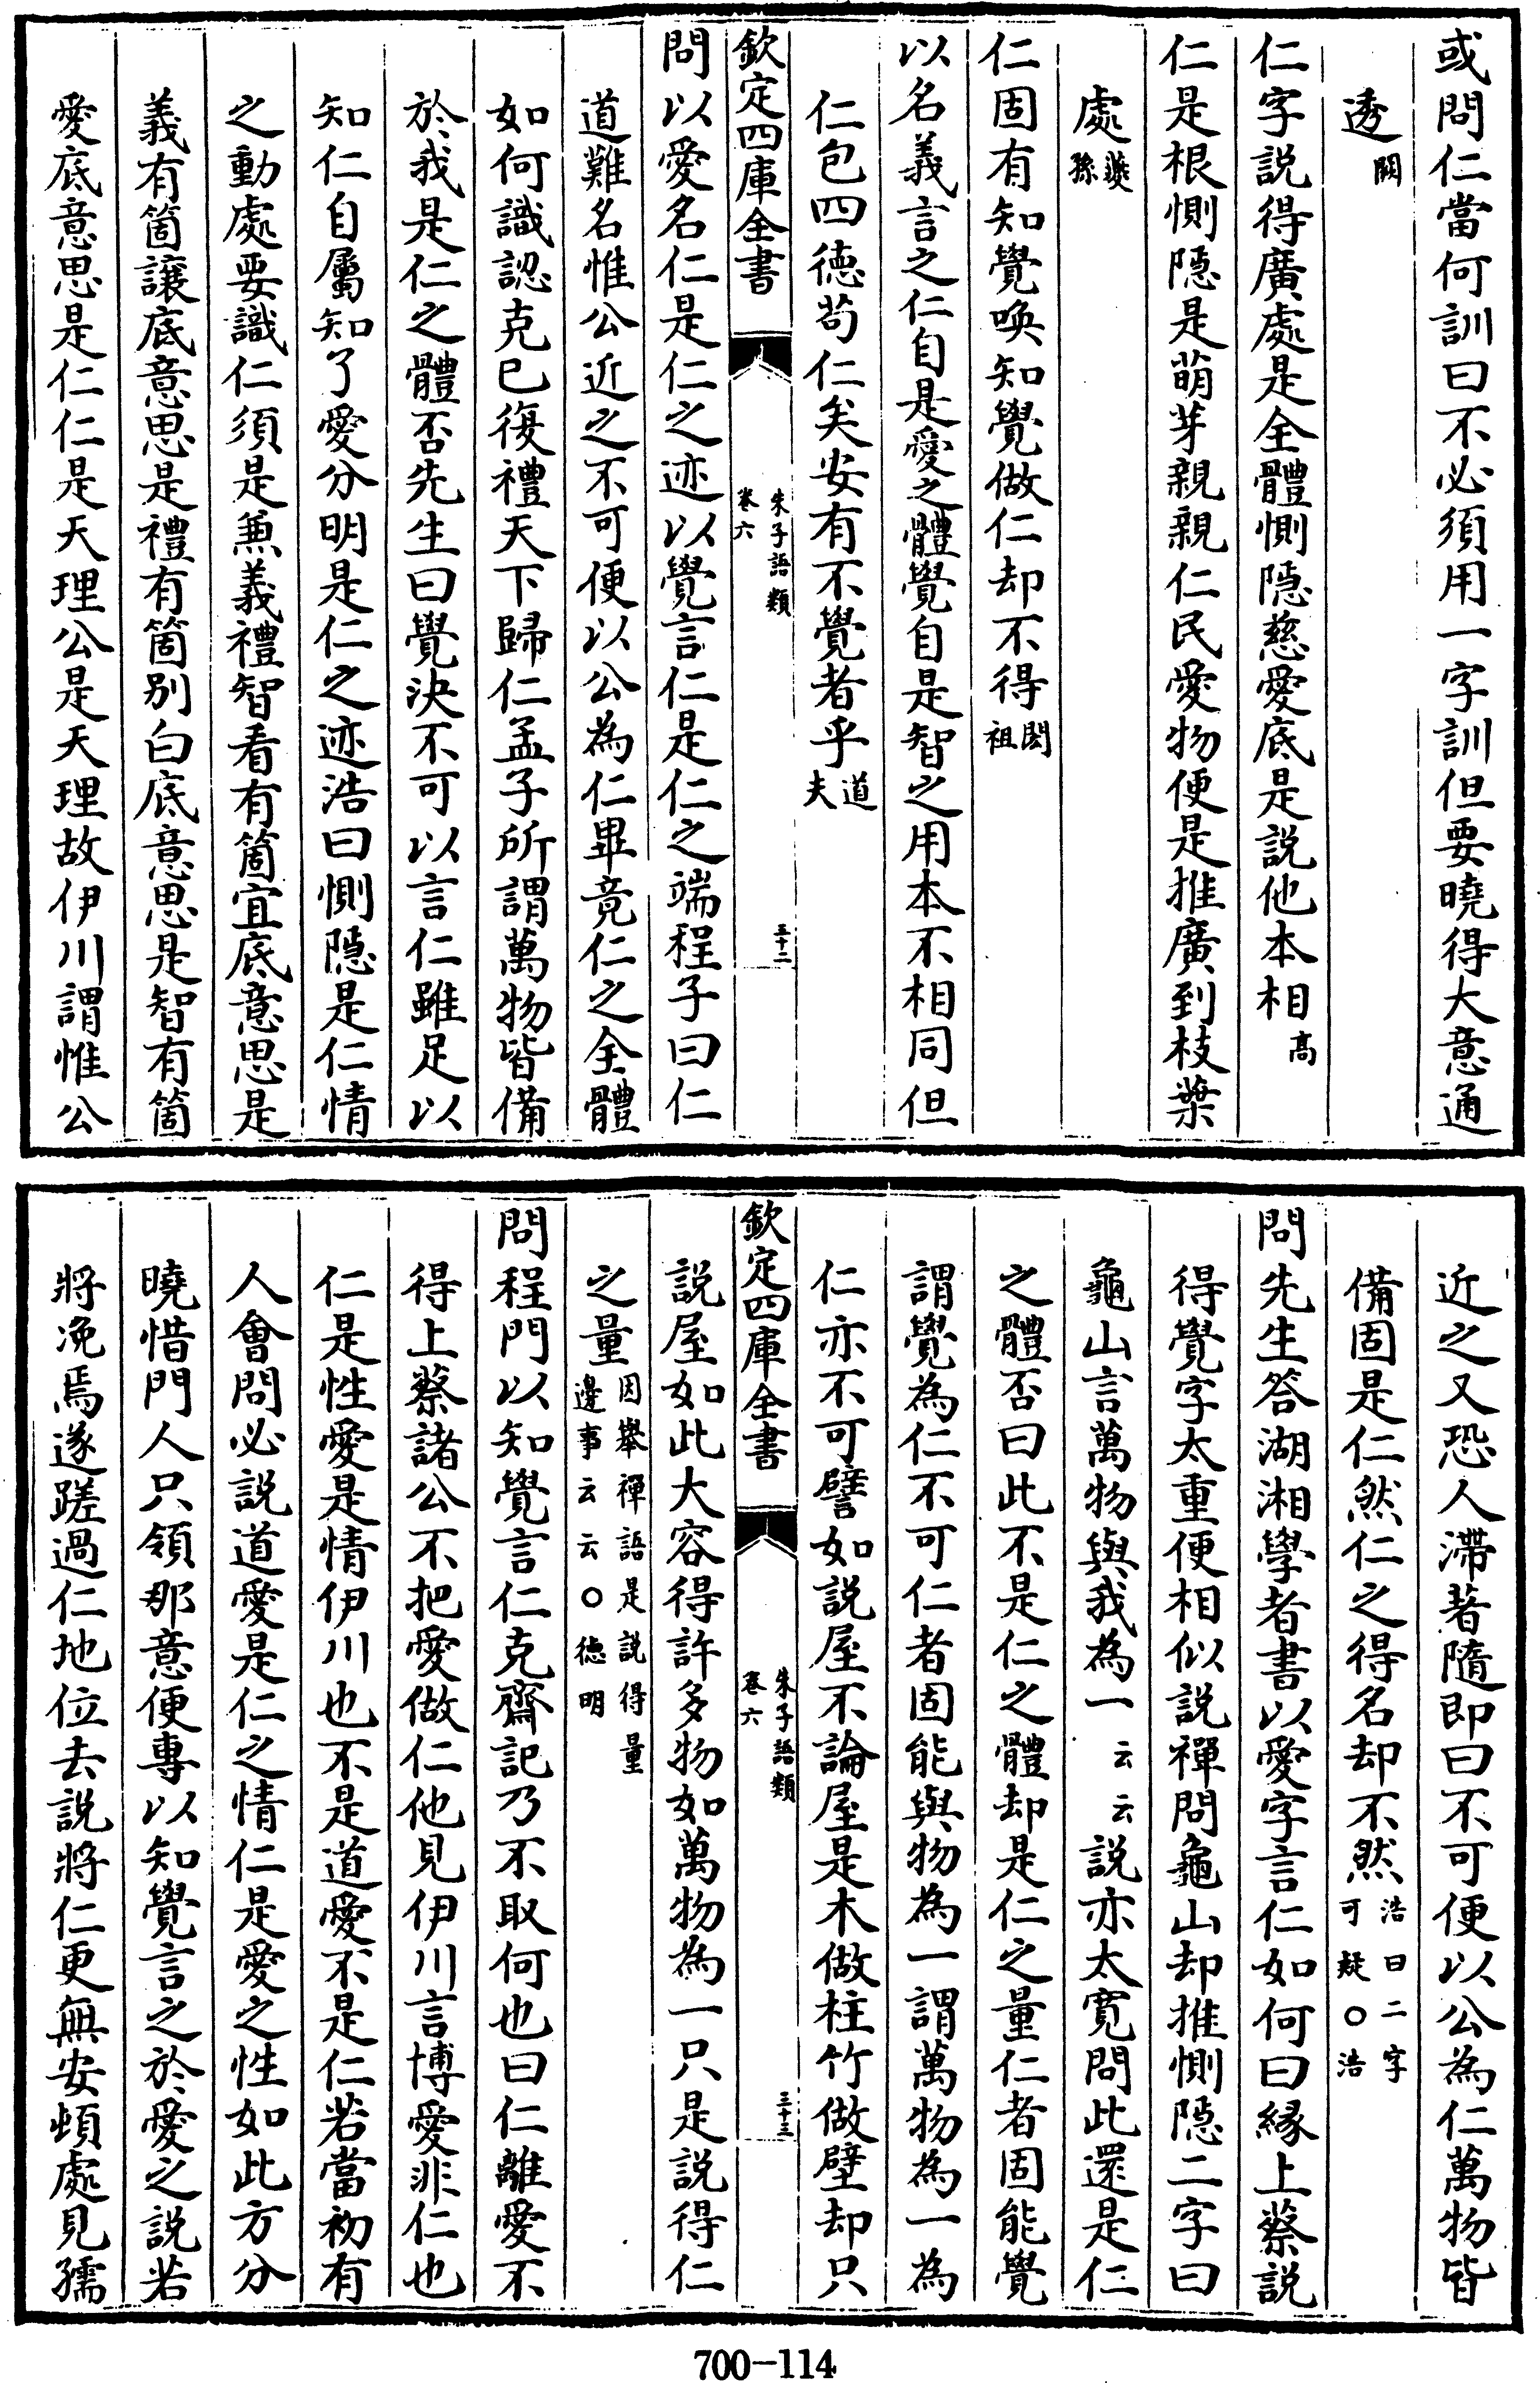 或問仁當何訓曰不必須用一字訓但要曉得大意通
透闕
仁字説得廣處是全體惻隠慈愛底是説他本相高
仁是根惻隠是萌芽親親仁民愛物便是推廣到枝葉
處䕫孫
仁固有知覺喚知覺做仁却不得閎祖
以名義言之仁自是愛之體覺自是智之用本不相同但
仁包四德茍仁矣安有不覺者乎道夫
欽定四庫全書 朱子語類 卷六 三十二
問以愛名仁是仁之迹以覺言仁是仁之端程子曰仁
道難名惟公近之不可便以公為仁畢竟仁之全體
如何識認克已復禮天下歸仁孟子所謂萬物皆備
於我是仁之體否先生曰覺決不可以言仁雖足以
知仁自屬知了愛分明是仁之迹浩曰惻隠是仁情
之動處要識仁須是兼義禮智看有箇宜底意思是
義有箇讓底意思是禮有箇别白底意思是智有箇
愛底意思是仁仁是天理公是天理故伊川謂惟公
近之又恐人滯著隨即曰不可便以公為仁萬物皆
備固是仁然仁之得名却不然浩曰二字可疑○浩
問先生答湖湘學者書以愛字言仁如何曰緣上蔡説
得覺字太重便相似説禪問龜山却推惻隠二字曰
龜山言萬物與我為一云云説亦太寛問此還是仁
之體否曰此不是仁之體却是仁之量仁者固能覺
謂覺為仁不可仁者固能與物為一謂萬物為一為
仁亦不可譬如説屋不論屋是木做柱竹做壁却只
欽定四庫全書 朱子語類 卷六 三十三
説屋如此大容得許多物如萬物為一只是説得仁
之量因舉禪語是説得量邊事云云○德明
問程門以知覺言仁克齋記乃不取何也曰仁離愛不
得上蔡諸公不把愛做仁他見伊川言博愛非仁也
仁是性愛是情伊川也不是道愛不是仁若當初有
人會問必説道愛是仁之情仁是愛之性如此方分
曉惜門人只領那意便專以知覺言之於愛之説若
將凂焉遂蹉過仁地位去説將仁更無安頓處見孺
700-114